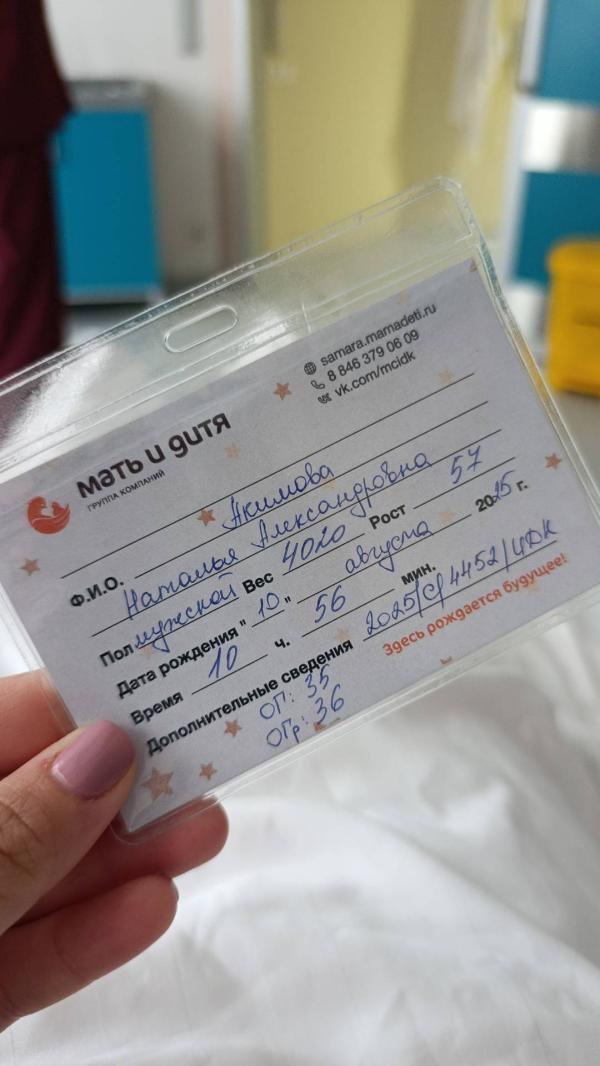 мать и дитя
ГРУППА КОМПАНИЙ
samara.mamadeti.ru
8 846 379 06 09
vk.com/mcidk
Акимова
Ф.И.О. Наталья Александровна
Пол мужской Вес 4020 Рост 57
Дата рождения " 10 " августа 2025 г.
Время 10 ч. 56 мин.
Дополнительные сведения 2025/СР4452/ЦДК
ОГ: 35
ОГр: 36
Здесь рождается будущее!